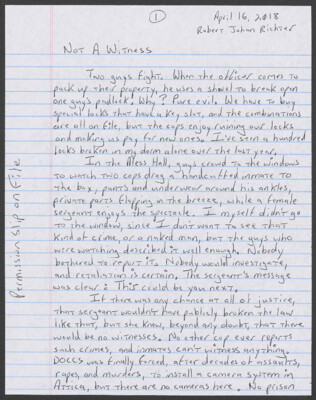 1
April 16, 2018
Robert Johan Richter
Not A Witness
Two guys fight. When the officer comes to
pack up their property, he uses a shovel to break open
one guy's padlock. Why? Pure evil. We have to buy
special locks that have a key slot, and the combinations
are all on file, but the cops enjoy ruining our locks
and making us pay for new ones. I've seen a hundred
locks broken in my dorm alone over the last year.
In the Mess Hall, guys crowd to the windows
to watch two cops drag a handcuffed inmate to
the box, pants and underwear around his ankles,
private parts flapping in the breeze, while a female
sergeant enjoys the spectacle. I myself didn't go
to the window, since I don't want to see that
kind of crime, or a naked man, but the guys who
were watching described it well enough. Nobody
bothered to report it. Nobody would investigate,
and retaliation is certain. The sergeant's message
was clear: This could be you next.
If there was any chance at all of justice,
that sergeant wouldn't have publicly broken the law
like that, but she knew, beyond any doubt, that there
would be no witnesses. No other cop ever reports
such crimes, and inmates can't witness anything.
DOCCS was finally forced, after decades of assaults,
rapes, and murders, to install a camera system in
Attica, but there are no cameras here. No prison
Permission slip on File